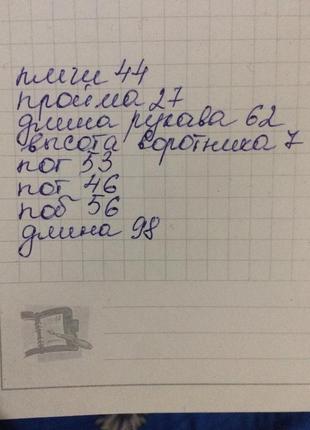 плечи 44
пройма 27
длина рукава 62
высота воротника 7
пог 53
пот 46
поб 56
длина 98